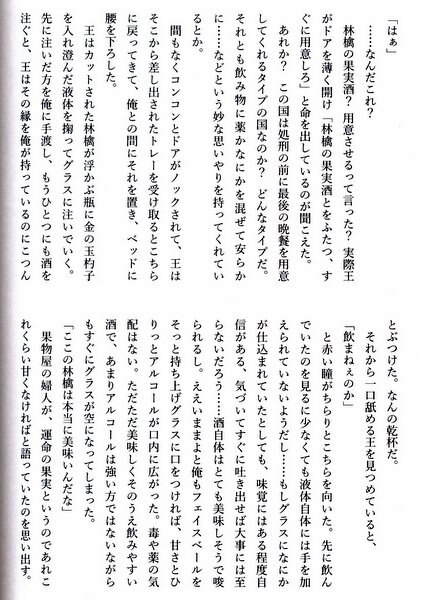 「はぁ」
　……なんだこれ？
　林檎の果実酒？　用意させるって言った？　実際王
がドアを薄く開け「林檎の果実酒とをふたつ、す
ぐに用意しろ」と命を出しているのが聞こえた。
　あれか？　この国は処刑の前に最後の晩餐を用意
してくれるタイプの国なのか？　どんなタイプだ。
それとも飲み物に薬かなにかを混ぜて安らか
に……などという妙な思いやりを持ってくれてい
るとか。
　間もなくコンコンとドアがノックされて、王は
そこから差し出されたトレーを受け取るとこちら
に戻ってきて、俺との間にそれを置き、ベッドに
腰を下ろした。
　王はカットされた林檎が浮かぶ瓶に金の玉杓子
を入れ澄んだ液体を掬ってグラスに注いでいく。
先に注いだ方を俺に手渡し、もうひとつにも酒を
注ぐと、王はその縁を俺が持っているのにこつん
とぶつけた。なんの乾杯だ。
　それから一口舐める王を見つめていると、
「飲まねぇのか」
　と赤い瞳がちらりとこちらを向いた。先に飲ん
でいたのを見るに少なくても液体自体には手を加
えられていないようだし……もしグラスになにか
が仕込まれていたとしても、味覚にはある程度自
信がある、気づいてすぐに吐き出せば大事には至
らないだろう……酒自体はとても美味しそうで唆
られるし。ええいままよと俺もフェイスベールを
そっと持ち上げグラスに口をつければ、甘さとひ
りっとアルコールが口内に広がった。毒や薬の気
配はない。ただただ美味しくそのうえ飲みやすい
酒で、あまりアルコールは強い方ではないながら
もすぐにグラスが空になってしまった。
「ここの林檎は本当に美味いんだな」
　果物屋の婦人が、運命の果実というのであれこ
れくらい甘くなければと語っていたのを思い出す。